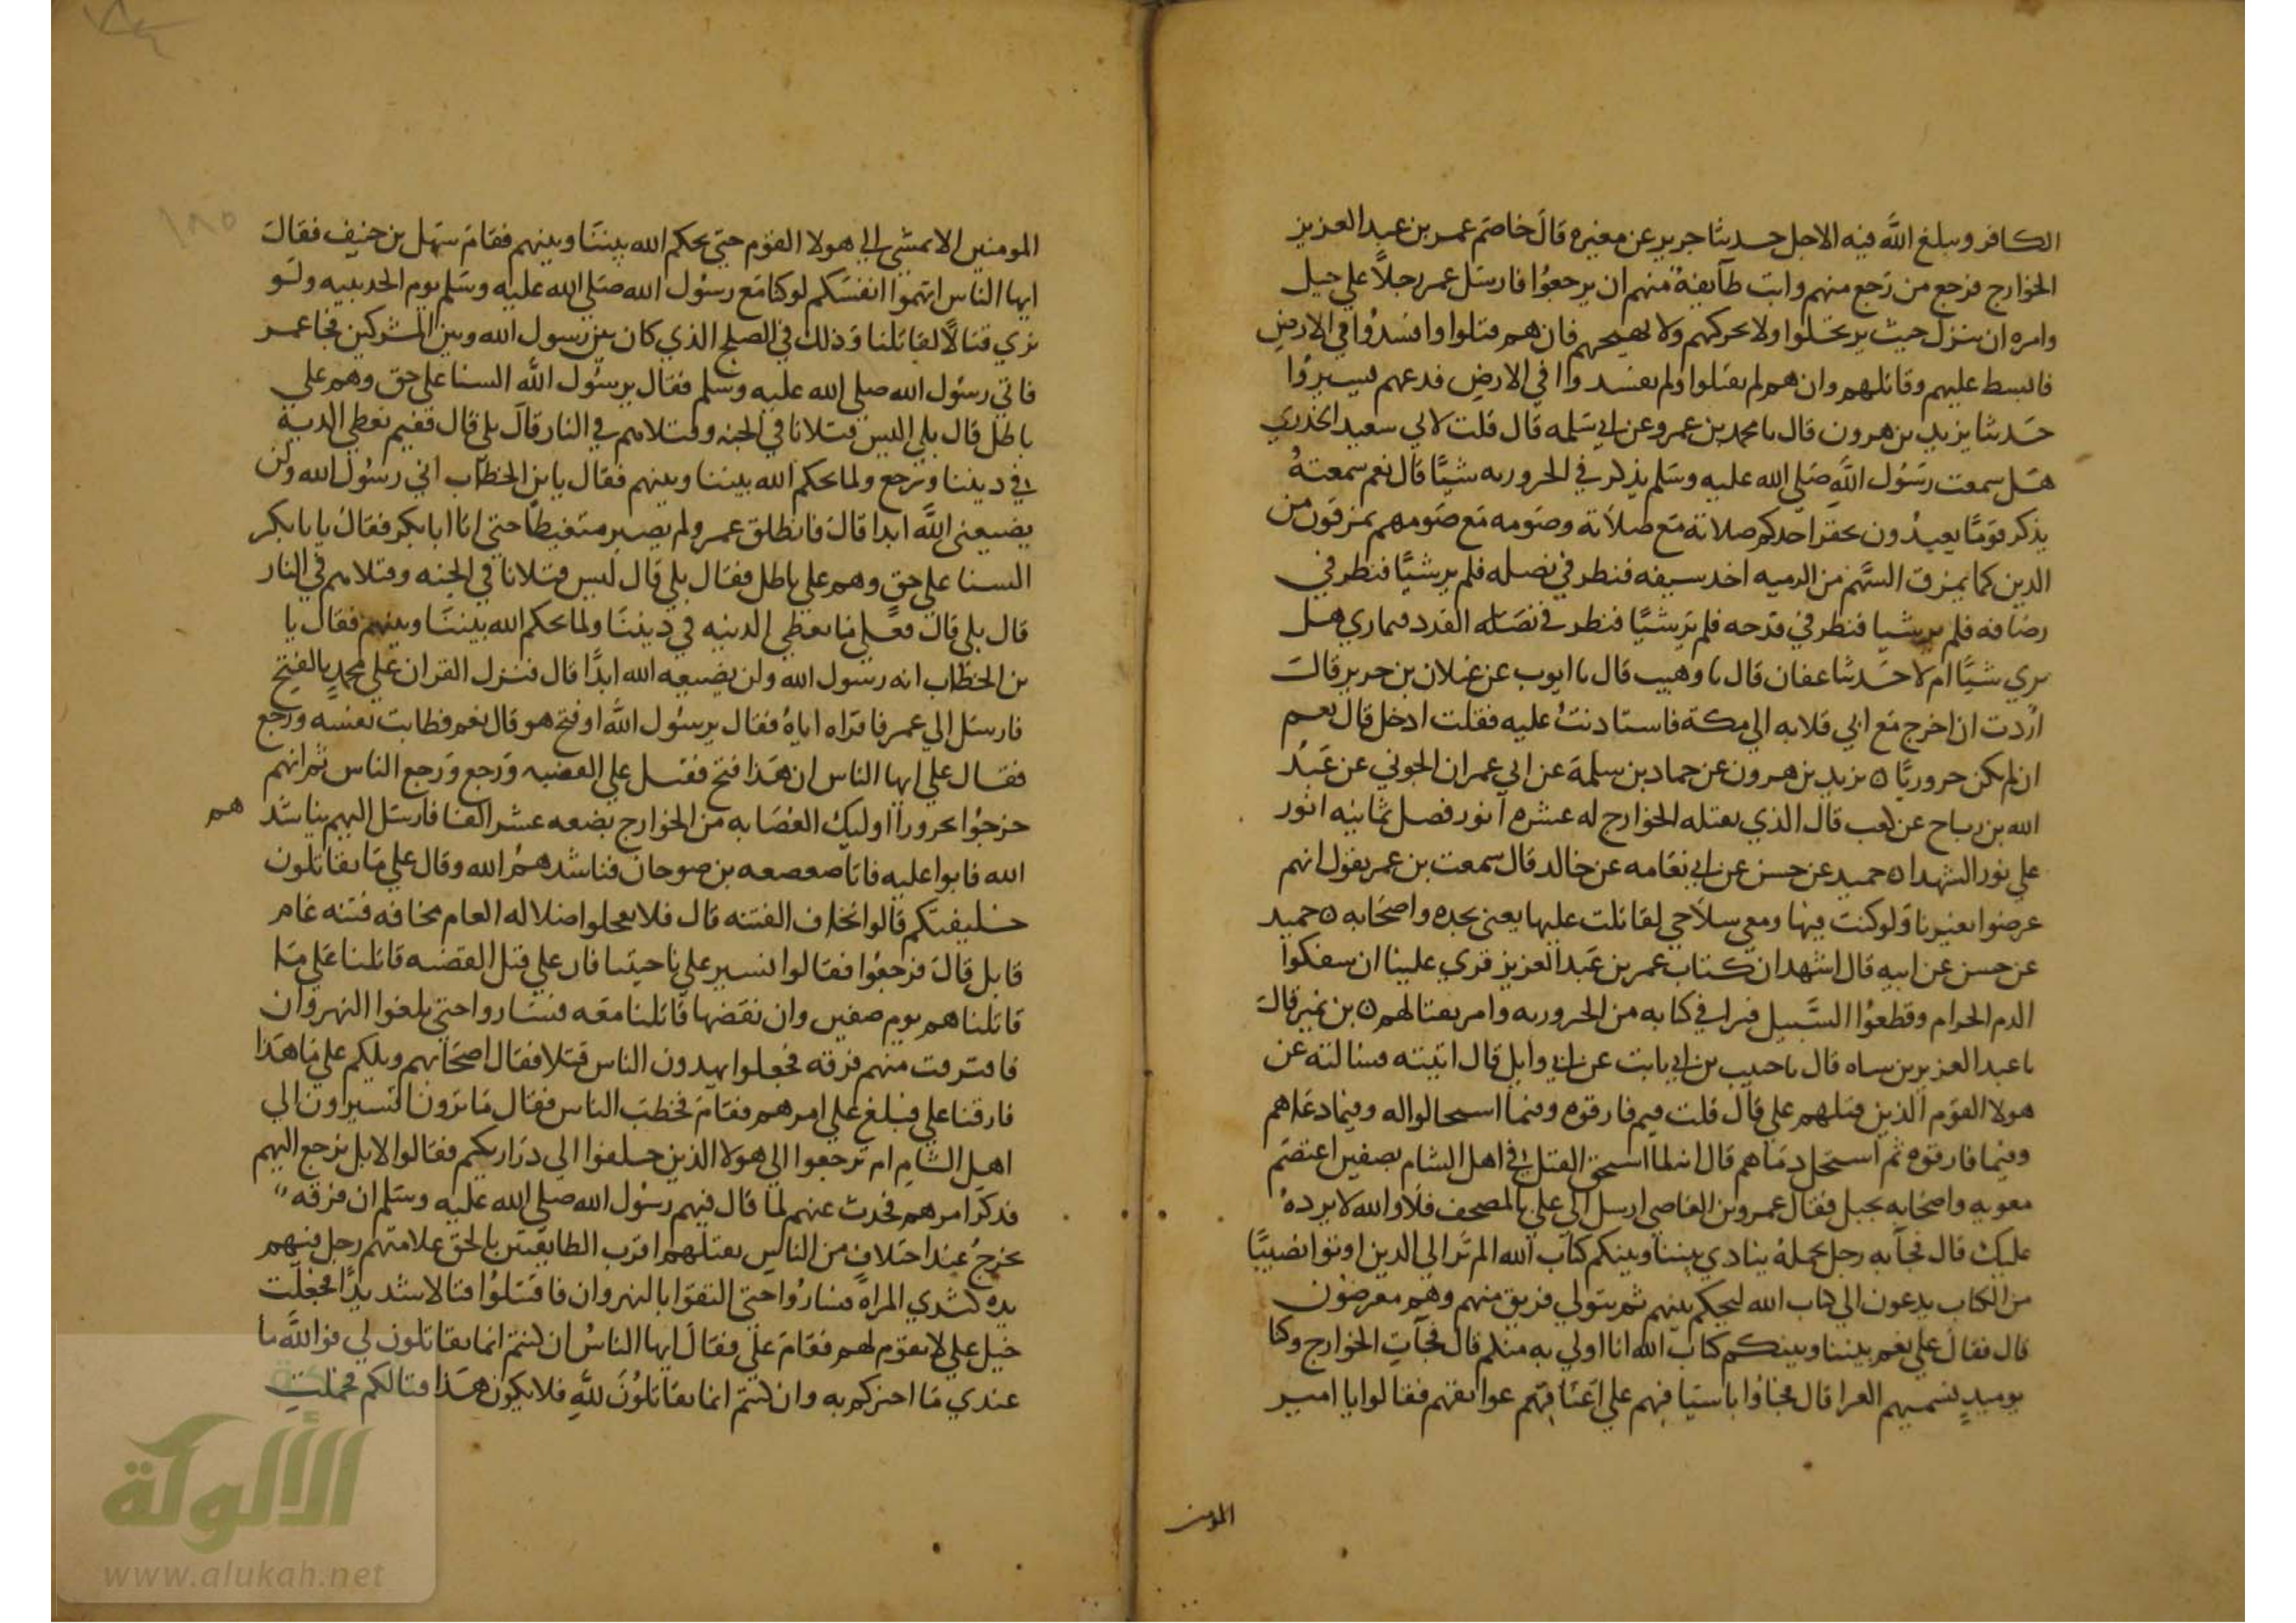 الكافر ويبلغ الله فيه الاجل حدثنا جرير عن مغيره قال خاصم عمر بن عبد العزيز
الخوارج فرجع من رجع منهم وابت طآيفة منهم ان يرجعوا فارسل عمر رجلا على خيل
وامره ان ينزل حيث يرتحلوا ولا يحركهم ولا يهيجهم فان هم قتلوا وافسدوا في الارض
فابسط عليهم وقاتلهم وان هم لم يقتلوا ولم يفسدوا في الارض فدعهم يسيروا
حدثنا يزيد بن هرون قال نا محمد بن عمرو عن ابي سلمه قال قلت لابي سعيد الخدري
هل سمعت رسول الله صلي الله عليه وسلم يذكر في الحروريه شيئا قال نعم سمعته
يذكر قوما يعبدون يحقر احدكم صلاته مع صلاته وصومه مع صومهم يمرقون من
الدين كما يمرق السهم من الرميه اخذ سيفه فنظر في نصله فلم ير شيئا فنظر في
رصافه فلم ير شيا فنظر في قدحه فلم ير شيئا فنظر في القذذ فماري هل
يري شيئا ام لا حدثنا عفان قال نا وهيب قال نا ايوب عن غيلان بن جرير قال
اردت ان اخرج مع ابي قلابه الي مكة فاستاذنت عليه فقلت ادخل قال نعم
ان لم يكن حروريا ه يزيد بن هرون عن حماد بن سلمة عن ابي عمران الجوني عن عبد
الله بن رباح عن كعب قال الذي يقتله الخوارج له عشره انور فضل ثمانيه انور
علي نور الشهدا ه حميد عن حسن عن ابي نعامه عن خالد قال سمعت بن عمر يقول انهم
عرضوا بغيرنا ولو كنت فيها ومعي سلاحي لقاتلت عليها يعني نجده واصحابه ه حميد
عن حسن عن ابيه قال اشهد ان كتاب عمر بن عبد العزيز قري علينا ان سفكوا
الدم الحرام وقطعوا السبيل فبرا في كتابه من الحروريه وامر بقتالهم ه بن نمير قال
نا عبد العزيز بن سياه قال نا حبيب بن ابي ثابت عن ابي وايل قال اتيته فسالته عن
هولا القوم الذين قتلهم علي قال قلت فيم فارقوه وفيما استجابوا له وفيما دعاهم
وفيما فارقوه ثم استحل دماهم قال انه لما استحر القتل في اهل الشام بصفين اعتصم
معويه واصحابه بجبل فقال عمرو بن العاصي ارسل الي علي بالمصحف فلا والله لا يرده
عليك قال فجآ به رجل يحمله ينادي بيننا وبينكم كتاب الله الم تر الي الذين اوتوا نصيبا
من الكتاب يدعون الي كتاب الله ليحكم بينهم ثم يتولي فريق منهم وهم معرضون
قال فقال علي نعم بيننا وبينكم كتاب الله انا اولي به منكم قال فجآت الخوارج وكنا
يوميذ نسميهم القرا قال فجاؤا باسيافهم علي اعناقهم عواتقهم فقالوا يا امير
المومنين
المومنين الا نمشي الي هولا القوم حتي يحكم الله بيننا وبينهم فقام سهل بن حنيف فقال
ايها الناس اتهموا انفسكم لو كنا مع رسول الله صلي الله عليه وسلم يوم الحديبيه ولو
نري قتالا لقاتلنا وذلك في الصلح الذي كان بين رسول الله وبين المشركين فجا عمر
فاتي رسول الله صلي الله عليه وسلم فقال يرسول الله السنا علي حق وهم علي
باطل قال بلي اليس قتلانا في الجنه وقتلاهم في النار قال بلي قال ففيم نعطي الدنية
في ديننا ونرجع ولما يحكم الله بيننا وبينهم فقال يا بن الخطاب اني رسول الله ولن
يضيعني الله ابدا قال فانطلق عمر ولم يصبر متغيظا حتي اتا ابا بكر فقال يا با بكر
السنا علي حق وهم علي باطل فقال بلي قال اليس قتلانا في الجنه وقتلاهم في النار
قال بلي قال فعلي ما نعطي الدنيه في ديننا ولما يحكم الله بيننا وبينهم فقال يا
بن الخطاب انه رسول الله ولن يضيعه الله ابدا قال فنزل القران علي محمد بالفتح
فارسل الي عمر فاقراه اياه فقال يرسول الله اوفتح هو قال نعم فطابت نفسه ورجع
فقال علي ايها الناس ان هذا فتح فقبل علي القضيه ورجع ورجع الناس ثم انهم
خرجوا بحرورا اوليك العصابه من الخوارج بضعه عشر الفا فارسل اليهم يناشد هم
الله فابوا عليه فاتا صعصعه بن صوحان فناشدهم الله وقال علي ما تقاتلون
خليفتكم قالوا نخاف الفتنه قال فلا تعجلوا ضلاله العام مخافه فتنه عام
قابل قال فرجعوا فقالوا نسير علي ناحيتنا فان علي قبل القضيه قاتلنا علي ما
قاتلناهم يوم صفين وان نقضها قاتلنا معه فساروا حتي بلغوا النهروان
فافترقت منهم فرقه فجعلوا يهدون الناس قتلا فقال اصحابهم ويلكم علي ما هذا
فارقنا علي فبلغ علي امرهم فقام فخطب الناس فقال ما ترون اتسيرون الي
اهل الشام ام ترجعوا الي هولا الذين خلفوا الي ذراريكم فقالوا لا بل نرجع اليهم
فذكر امرهم فحدث عنهم لما قال فيهم رسول الله صلي الله عليه وسلم ان فرقه
تخرج عند اختلاف من الناس يقتلهم اقرب الطايفتين بالحق علامتهم رجل فيهم
يده كثدي المراة فساروا حتي التقوا بالنهروان فاقتتلوا قتالا شديدا فجعلت
خيل علي لا تقوم لهم فقام علي فقال ايها الناس ان كنتم انما تقاتلون لي فوالله ما
عندي ما اجزكم به وان كنتم انما تقاتلون لله فلا يكون هذا قتالكم فحملت
الألوكة
www.alukah.net